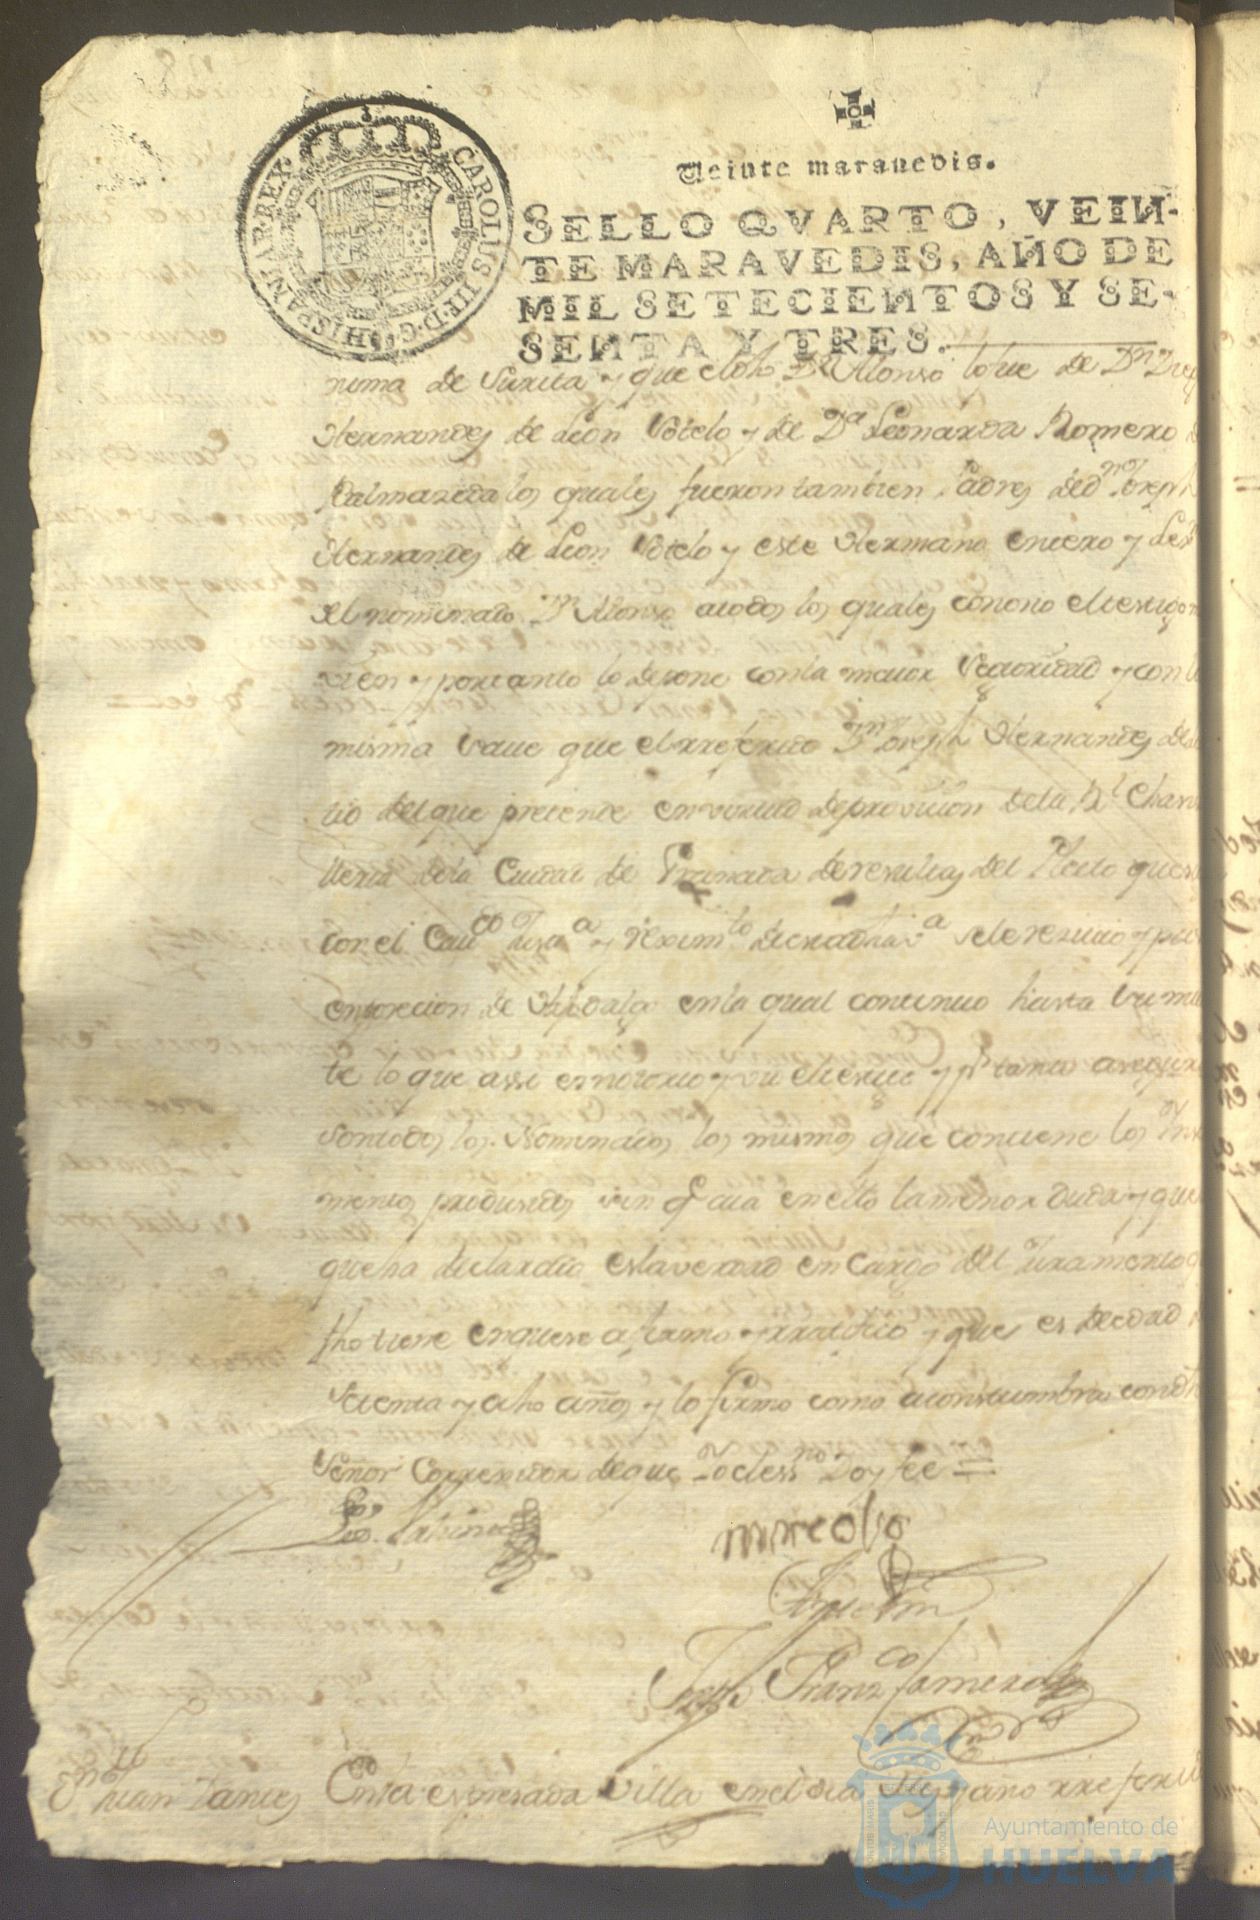 CAROLUS III D G HISPANIAR REX
Veinte maravedis.
SELLO QVARTO, VEIN-
TE MARAVEDIS, AÑO DE
MIL SETECIENTOS Y SE-
SENTA Y TRES.
nima de Surita y que el dho Dn Alonso lo fue de Dn
Hernandes de Leon Sotelo y de Da Leonarda Romero
Palmareda los quales fueron tambien Padres de dn Joseph
Hernandes de Leon Sotelo y este Hermano entero y
del nominado Dn Alonso a todos los quales conocio el testigo
vien y por tanto lo depone con la maior seguridad y con la
misma save que el rreferido Dn Joseph Hernandes
tio del que pretende en virtud de provision de la Rl Chan
lleria de la Ciudad de Granada de resultas del Pleito que
con el Cavdo Justa y Reximto de esta dha va se le reciuio y
en posecion de Hidalgo en la qual continuo hasta su mu
te lo que assi es notorio y vio el testigo y pr tanto
son todos los Nominados los mismos que contiene los
mentos produsidos sin qe aia en ello la menor duda y que
que ha declardio es la verdad en cargo del Juramento
fho tiene en que se afirmo y rratifico y que es de edad
setenta y ocho años y lo firmo como acostumbra con dho
Señor Correxidor de que Yo el essno Doy fee =
nicolas
Joseph Franco
Juan
En la expresada Villa en el dia mes y año rreferid
Ayuntamiento de
HUELVA